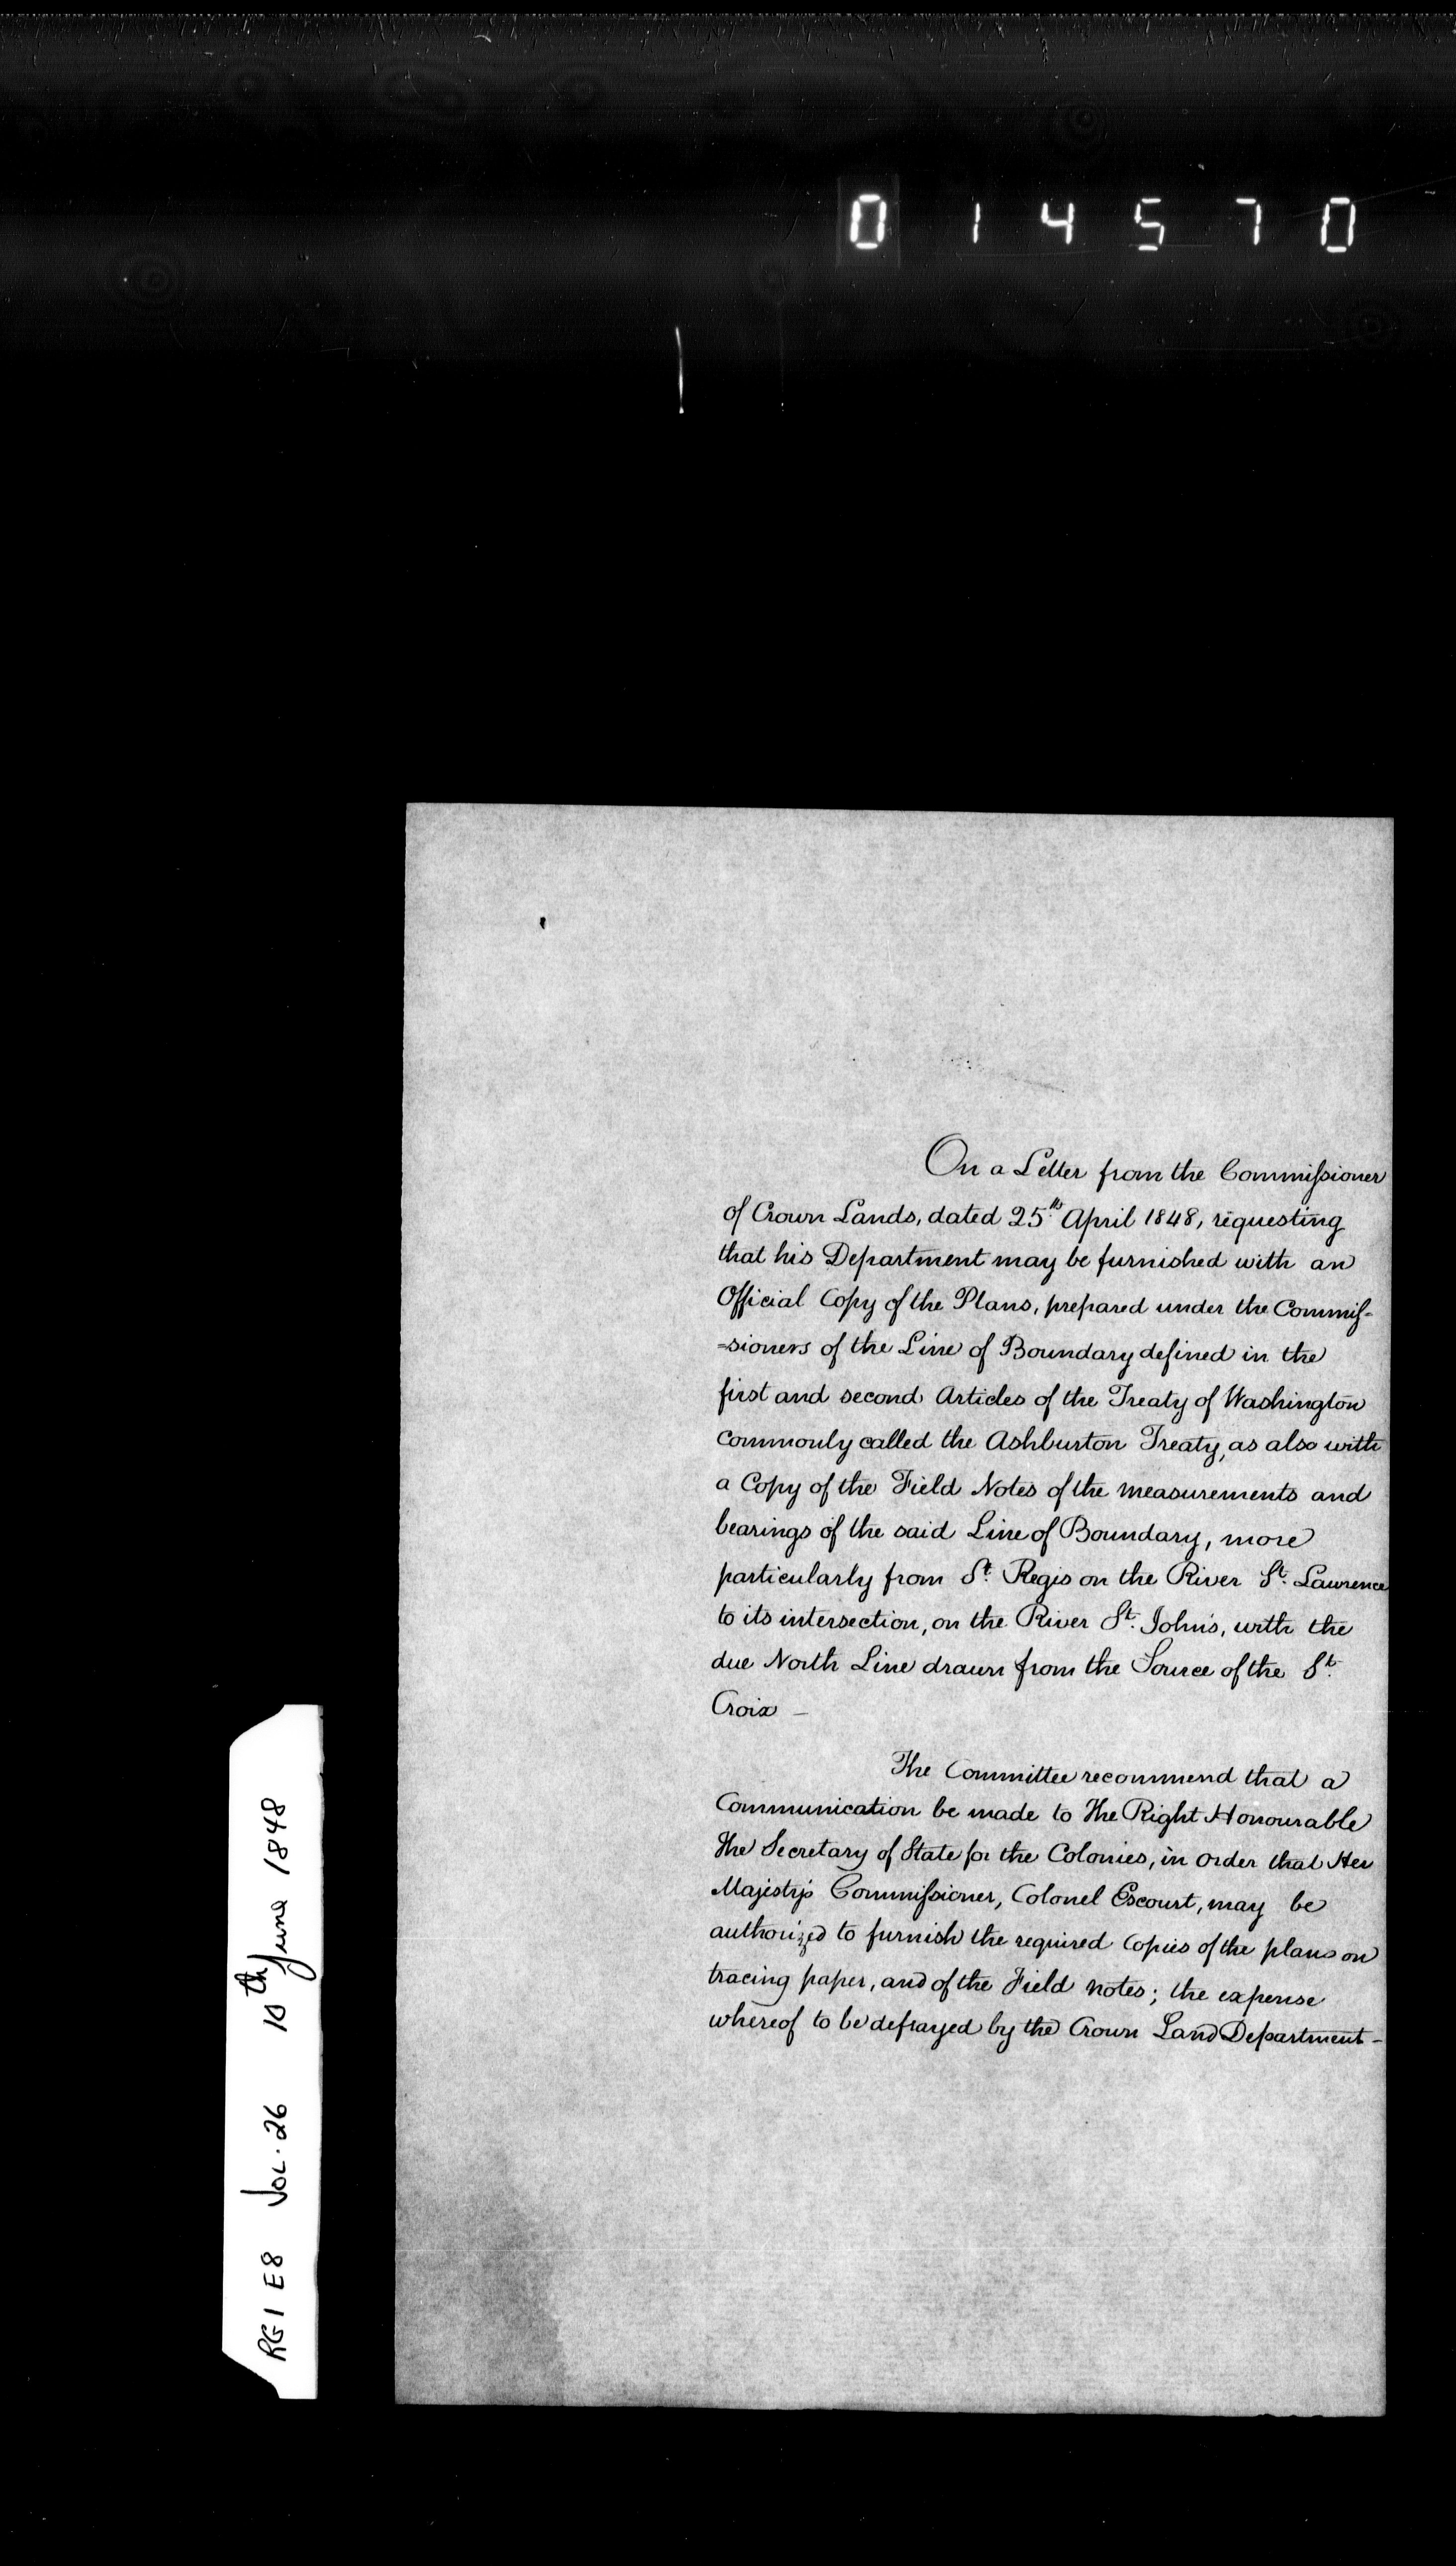 014570
On a Letter from the Commissioner
of Crown Lands, dated 25th April 1848, requesting
that his Department may be furnished with an
Official Copy of the Plans, prepared under the Commis-
=sioners of the Line of Boundary defined in the
first and second Articles of the Treaty of Washington
commonly called the Ashburton Treaty, as also with
a Copy of the Field Notes of the measurements and
bearings of the said Line of Boundary, more
particularly from St. Regis on the River St. Lawrence
to its intersection, on the River St. John's, with the
due North Line drawn from the Source of the St.
Croix –
The Committee recommend that a
Communication be made to The Right Honourable
The Secretary of State for the Colonies, in order that Her
Majesty's Commissioner, Colonel Escourt, may be
authorized to furnish the required Copies of the plans on
tracing paper, and of the Field notes; the expense
whereof to be defrayed by the Crown Land Department –
RG1 E8 VOL. 26 10th June 1848